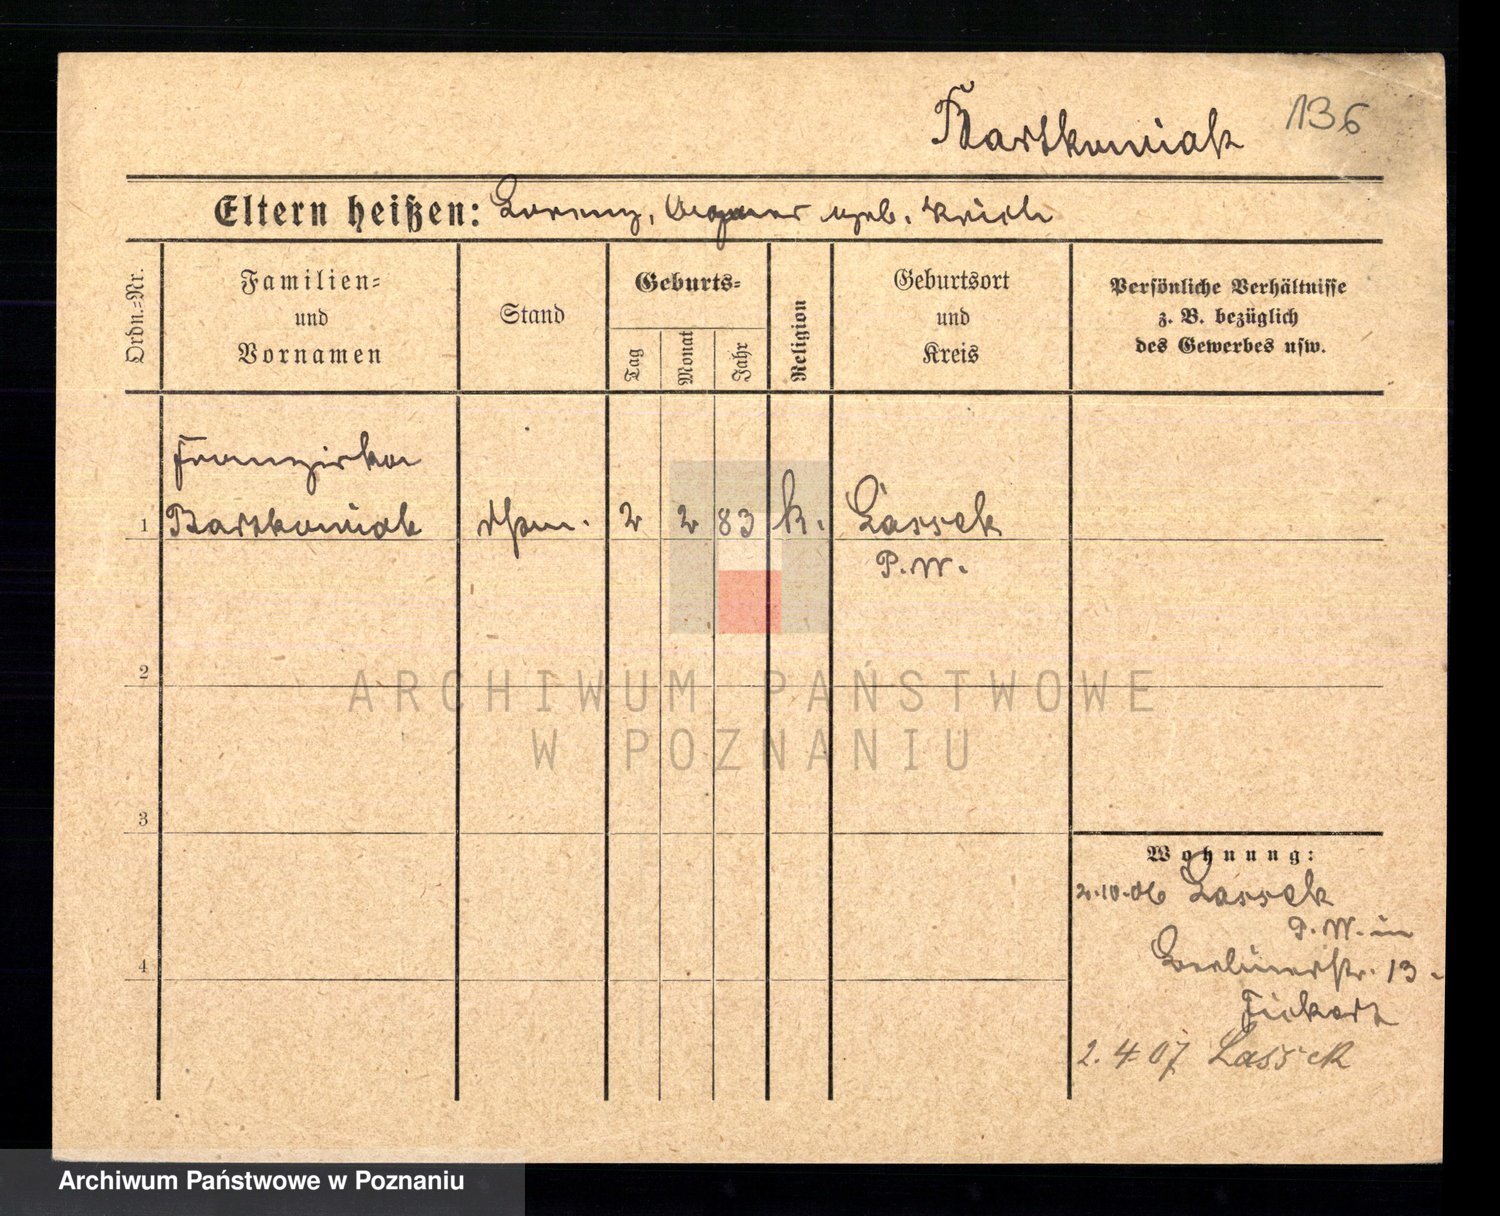 Bartkowiak 136
Eltern heißen: Lorenz, Agnes geb.
Ordn.=Nr.
Familien=
und
Vornamen
Stand
Geburts=
Tag
Monat
Jahr
Religion
Geburtsort
und
Kreis
Persönliche Verhältnisse
z. B. bezüglich
des Gewerbes usw.
Franziska
1 Bartkowiak 2 2 83 k. Lassek
P. W.
2
3
4
Wohnung:
2.10.06 Lassek
P. W. in
Berlinerstr. 13
2.4.07 Lassek
ARCHIWUM PAŃSTWOWE
W POZNANIU
Archiwum Państwowe w Poznaniu